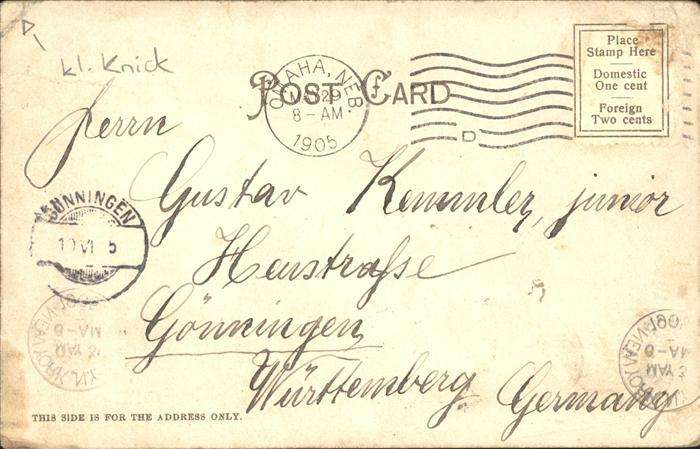 kl. Knick
POST CARD
OMAHA, NEB.
29
8-AM
1905
D
Place
Stamp Here
Domestic
One cent
Foreign
Two cents
Herrn
Gustav Kemmler, junior
GÖNNINGEN
Gönningen
Württemberg Germany
THIS SIDE IS FOR THE ADDRESS ONLY.